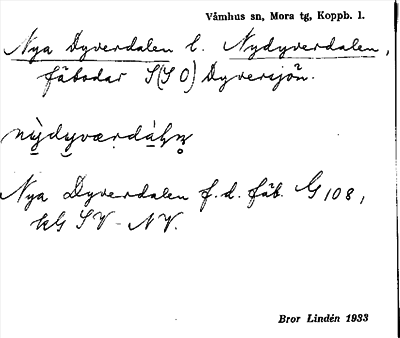 Våmhus sn, Mora tg, Koppb. l.
Nya Dyverdalen l. Nydyverdalen,
fäbodar S(SO) Dyversjön.
Nya Dyverdalen f.d. fäb. G 108,
SV - NV.
Bror Lindén 1933